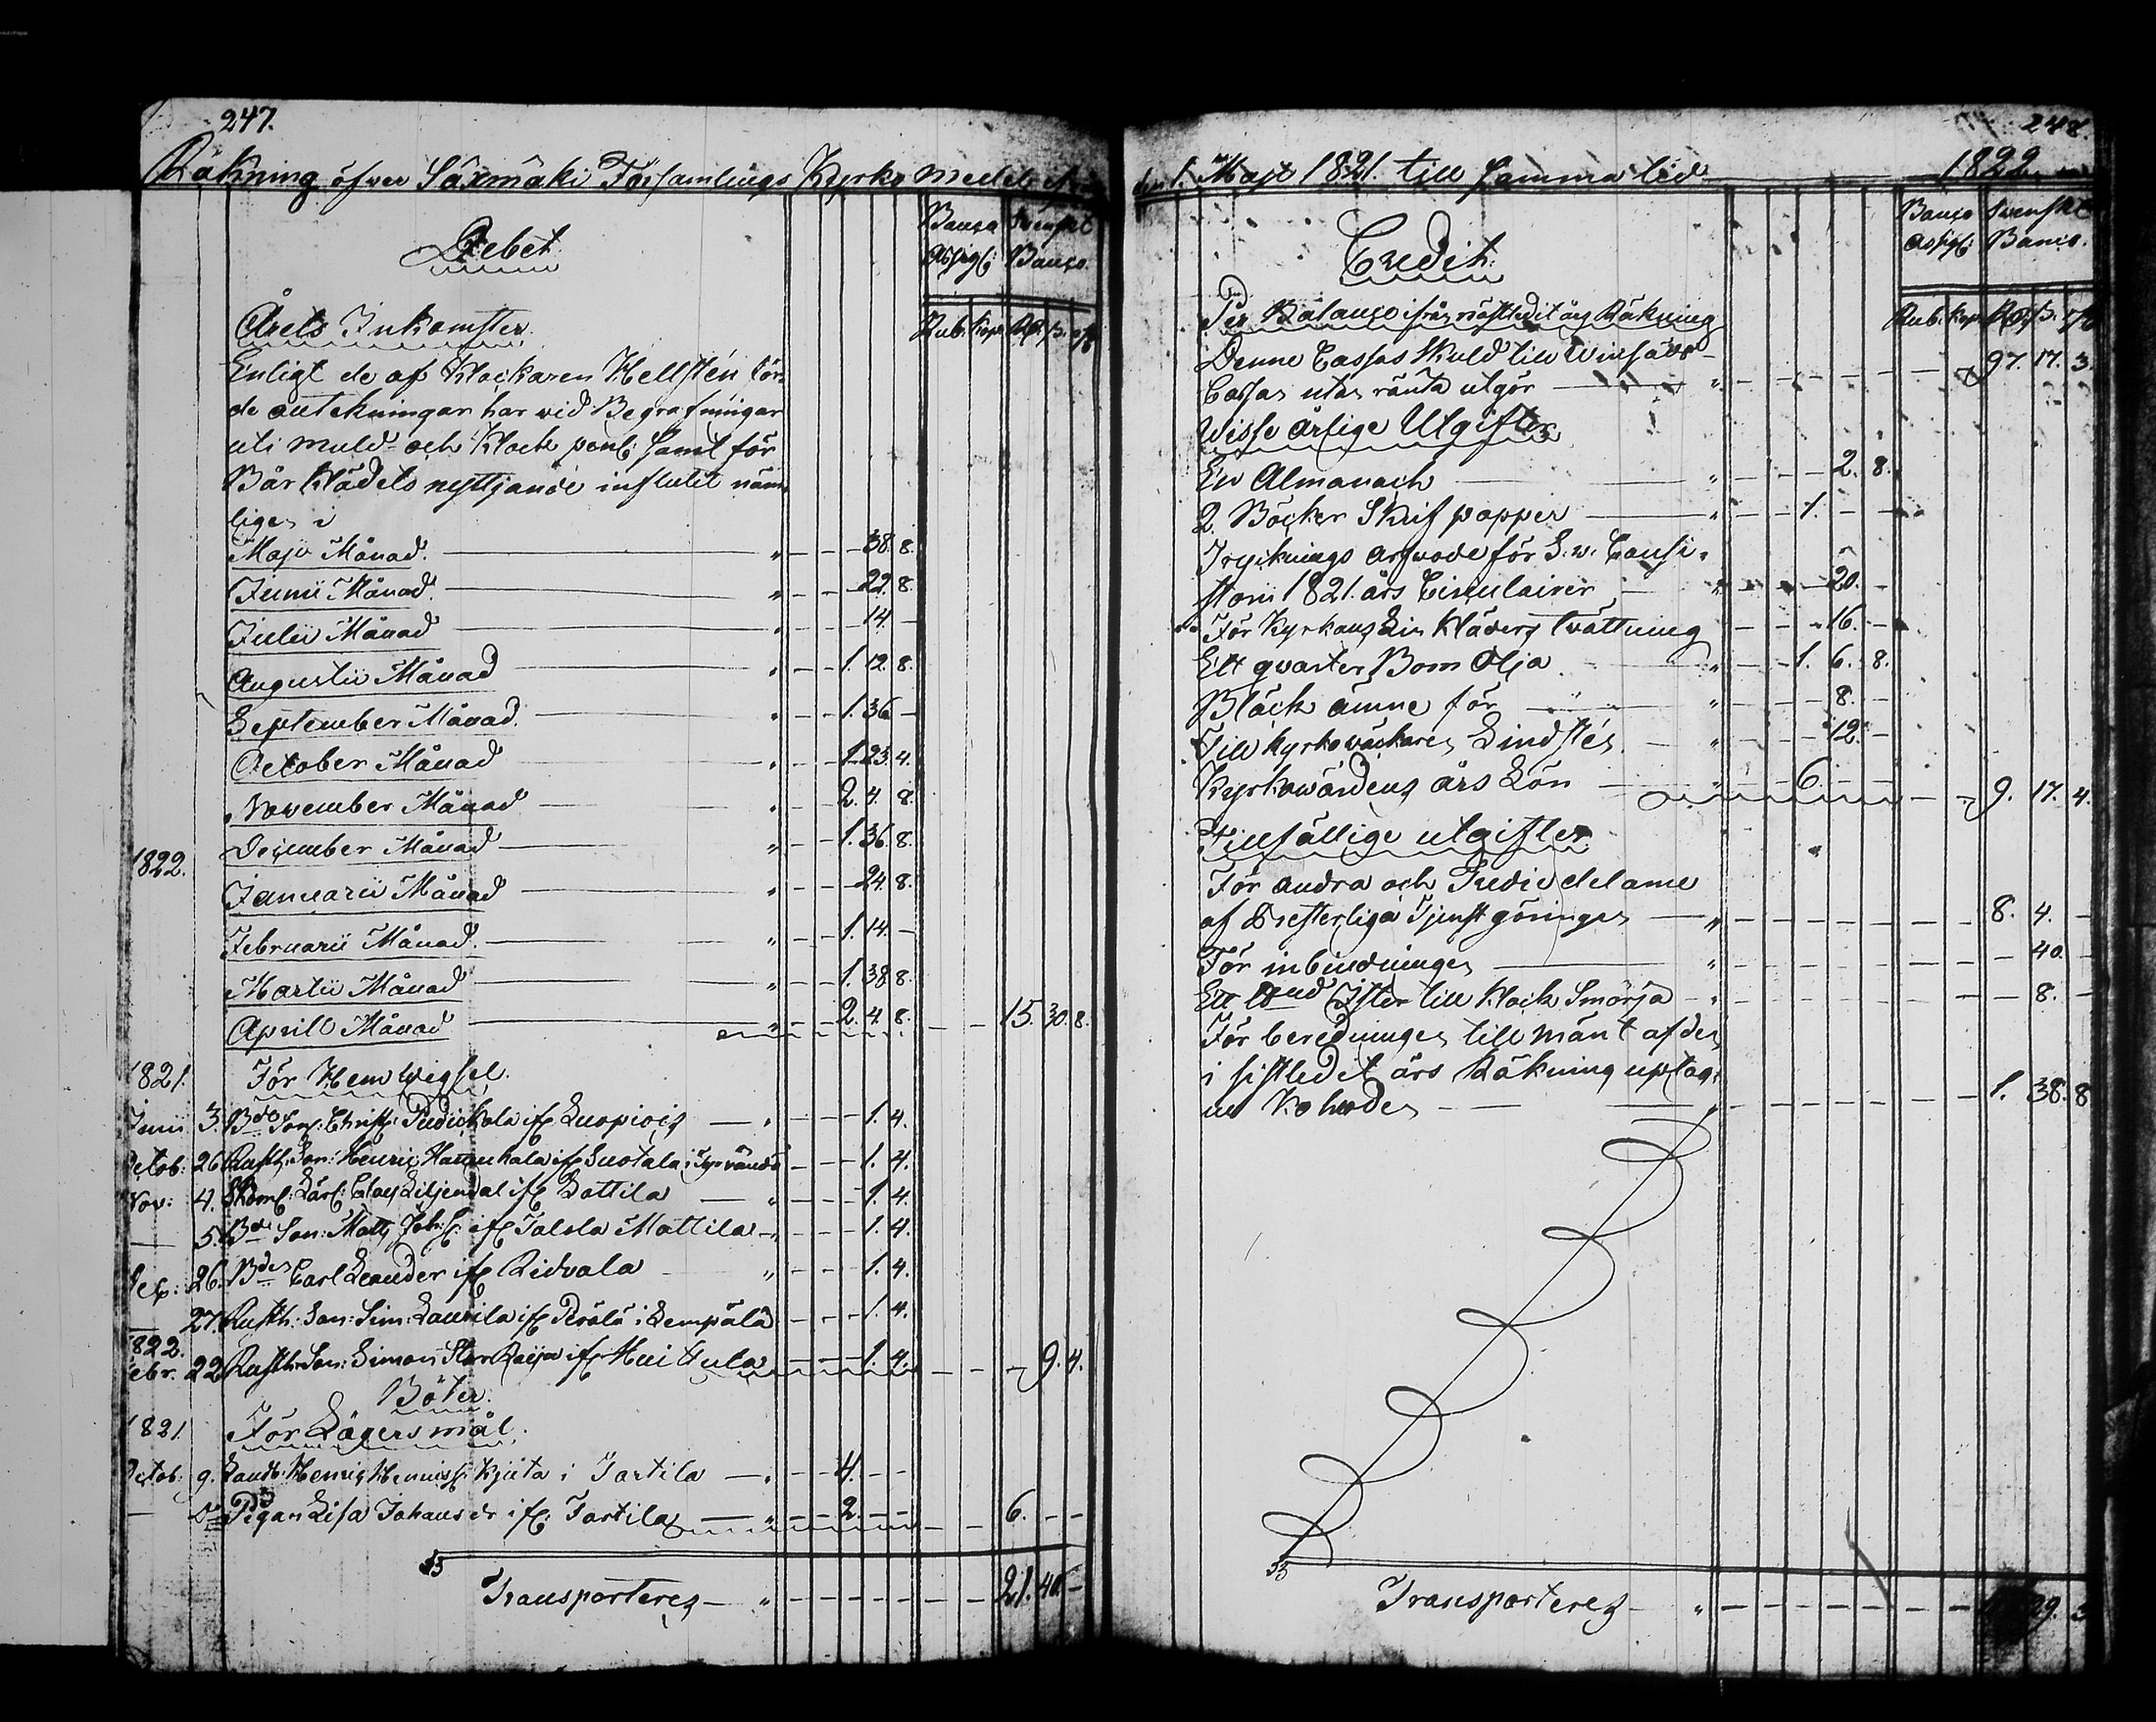 247.
Räkning öfver Säxmäki Församlings Kyrko Medel ifrån
Debet
Banco Assigl: Svenskt Banco.
Rub. Kop. Rd. ß. rst
Årets Inkomster
Enligt de af Klockaren Hellstén för-
de antekningar har vid Begrafningar
uti muld- och Klock penl: samt för
Bår Klädets nyttjande influtit näm-
ligen i
Maji Månad. " 38. 8.
Junii Månad. " 22. 8.
Julii Månad " 14. -
Augustii Månad " 1. 12. 8.
September Månad. " 1. 36. -
October Månad " 1. 23. 4.
November Månad " 2. 4. 8.
December Månad " 1. 36. 8.
1822.
Januarii Månad " 24. 8.
Februarii Månad. " 1. 14. -
Martii Månad " 1. 38. 8.
Aprill Månad " 2. 4. 8. 15. 30. 8.
1821. För Hem Wigsel.
Junii 3. Bde Son: Christ: ifr Luopiois " 1. 4.
Octob: 26. Rusth: Son: Henric Hannukala ifr i Tyrvändö 1. 4.
Nov: 4. Liljendal ifr Lottila " 1. 4.
5. Bde Son: Matts Joh: ifr Jalula Mattila 1. 4.
26. Bden Carl Leander ifr Ridvala " 1. 4.
27. Rusth: Son: Sim: Laurila ifr Perälä i Lempälä 1. 4.
1822.
Febr. 22. Rusth: Son: Simon ifr Huittula 1. 4. 9. 4.
Böter.
1821. För Lägersmål.
Octob: 9. Landb: Henric Henricss: i Tartila " 4. - -
Do Pigan Lisa Johansdr ifr Tartila " 2. - - 6. - -
Transporteres " 21. 40. -
248.
den 1. Maji 1821. till samma tid 1822
Credit.
Banco Assigl: Svenskt Banco.
Rub. Kop. Rd. ß. rst
Per Balanco ifrån nästledit års Räkning
Denne Cassas Skuld till
Cassan utan ränta utgör " 97. 17. 3.
Wisse årlige Utgifter
En Almanach " 2. 8.
2. Böcker Skrif papper " 1. - -
Trycknings arfwode för E. w. Consi-
storii 1821. års Circulairer " 20. -
För Kyrkans Lin Kläders twättning 16. -
Ett qvarter Bom Olja " 1. 6. 8.
Bläck ämne för " 8. -
Till Kyrkoväckaren Lindstén " 12. -
Kyrkowärdens års Lön " 6. - - 9. 17. 4.
Tillfällige utgifter
För andra och Tredie delarne
af Presterliga Tjenst göringen " 8. 4. -
För inbindningen " 40. -
Ett Pund Ister till Klock Smörja " 8. -
För beredningen till mänt af den
i sistledit års Räkning uptag-
ne Ko huden " 1. 38. 8
Transporteres " 29. 3